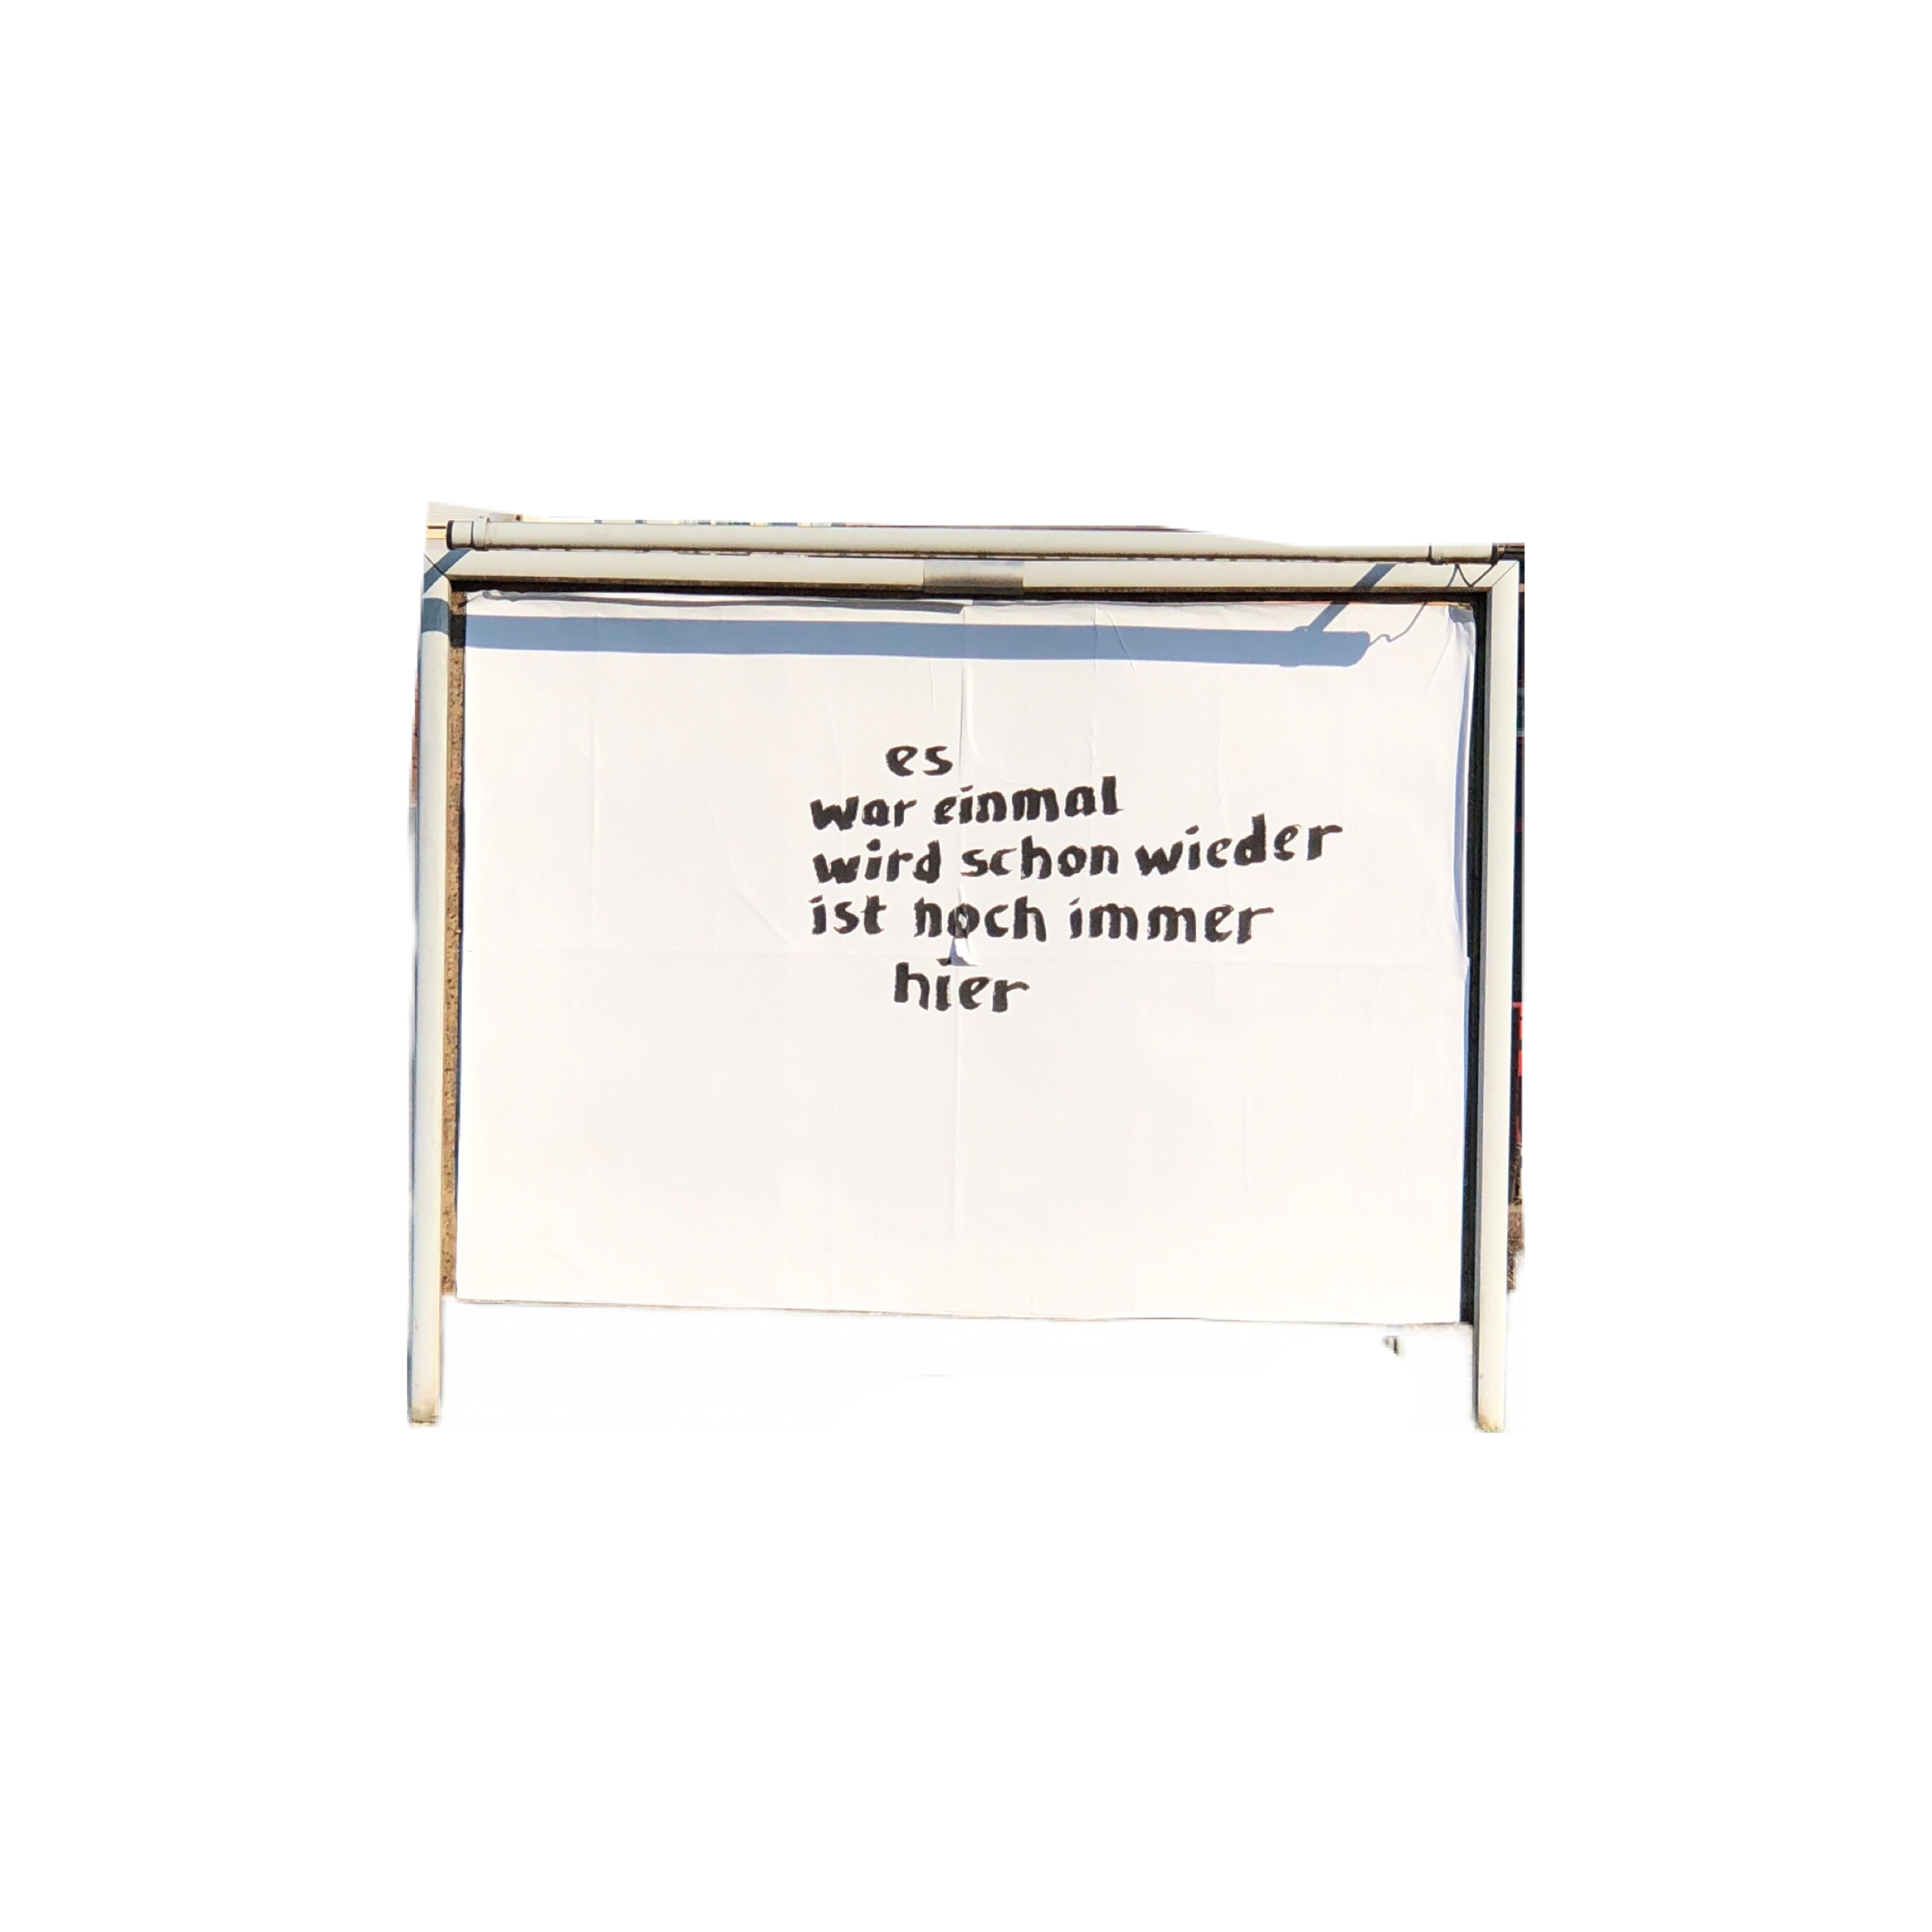 es
war einmal
wird schon wieder
ist noch immer
hier